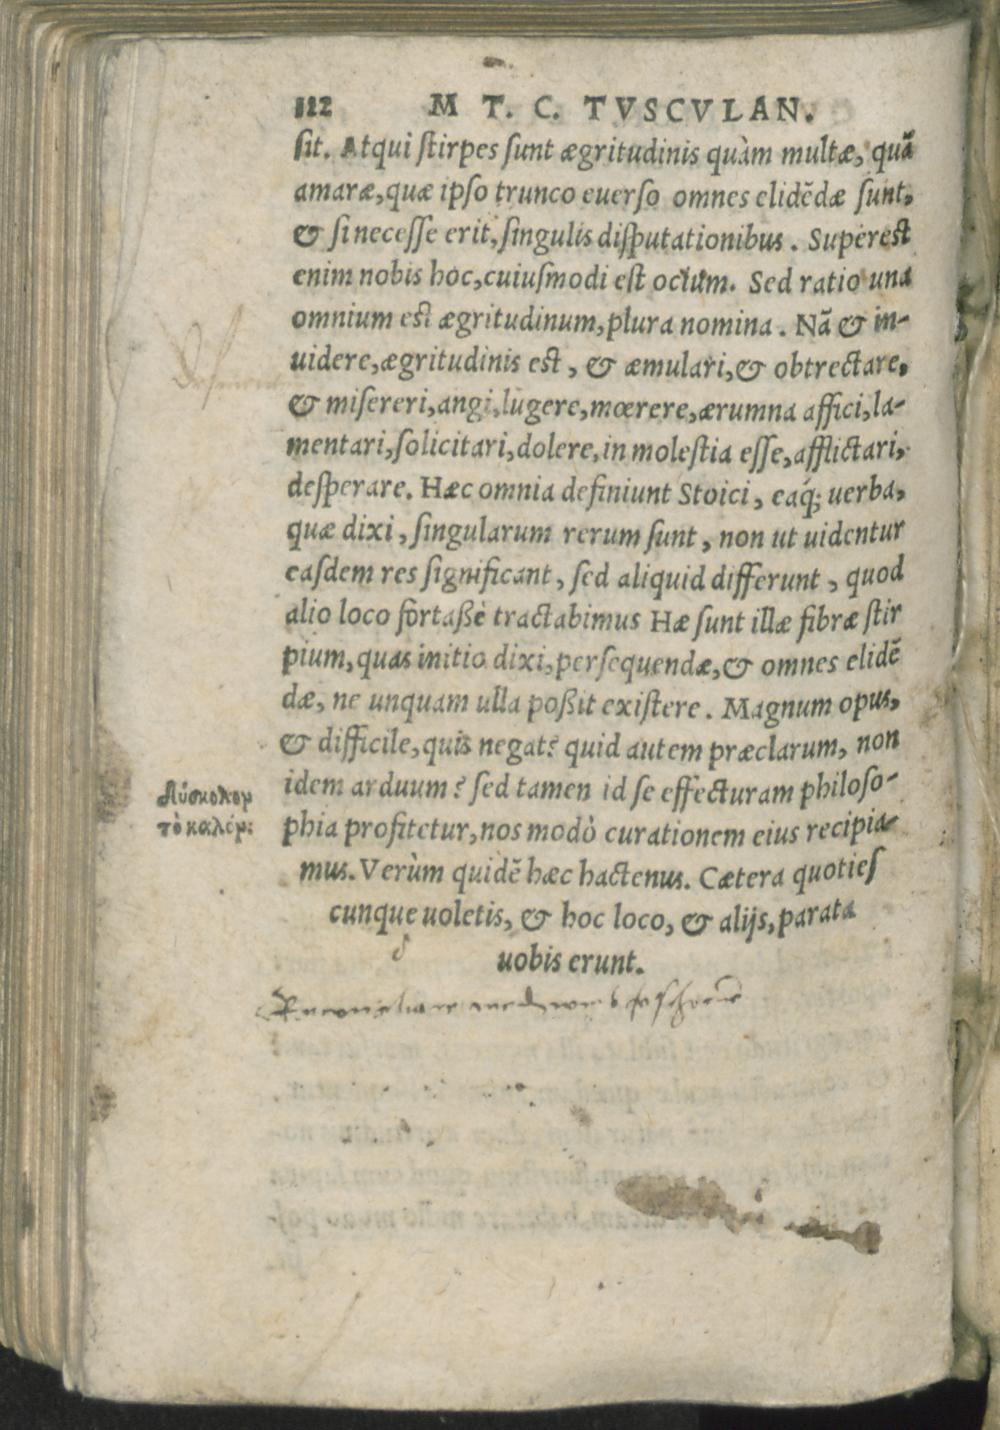 112 M T. C. TVSCVLAN.
sit. Atqui ſtirpes ſunt ægritudinis quàm multæ, quã
amaræ, quæ ipſo trunco euerſo omnes elidẽdæ ſunt,
& ſi neceſſe erit, ſingulis diſputationibus. Supereſt
enim nobis hoc, cuiuſmodi eſt ocium. Sed ratio una
omnium eſt ægritudinum, plura nomina. Nã & in-
uidere, ægritudinis est, & æmulari, & obtrectare,
& miſereri, angi, lugere, mœrere, ærumna affici, la-
mentari, ſolicitari, dolere, in moleſtia eſſe, afflictari,
deſperare. Hæc omnia definiunt Stoici, eaq́; uerba,
quæ dixi, ſingularum rerum ſunt, non ut uidentur
eaſdem res ſignificant, ſed aliquid differunt, quod
alio loco fortaßè tractabimus Hæ ſunt illæ fibræ ſtir
pium, quas initio dixi, perſequendæ, & omnes elidẽ
dæ, ne unquam ulla poßit exiſtere. Magnum opus,
& difficile, quis negat? quid autem præclarum, non
idem arduum? ſed tamen id ſe effecturam philoſo-
phia profitetur, nos modò curationem eius recipia-
mus. Verùm quidẽ hæc hactenus. Cætera quotieſ
cunque uoletis, & hoc loco, & alijs, parata
uobis erunt.
τὸ καλόν: